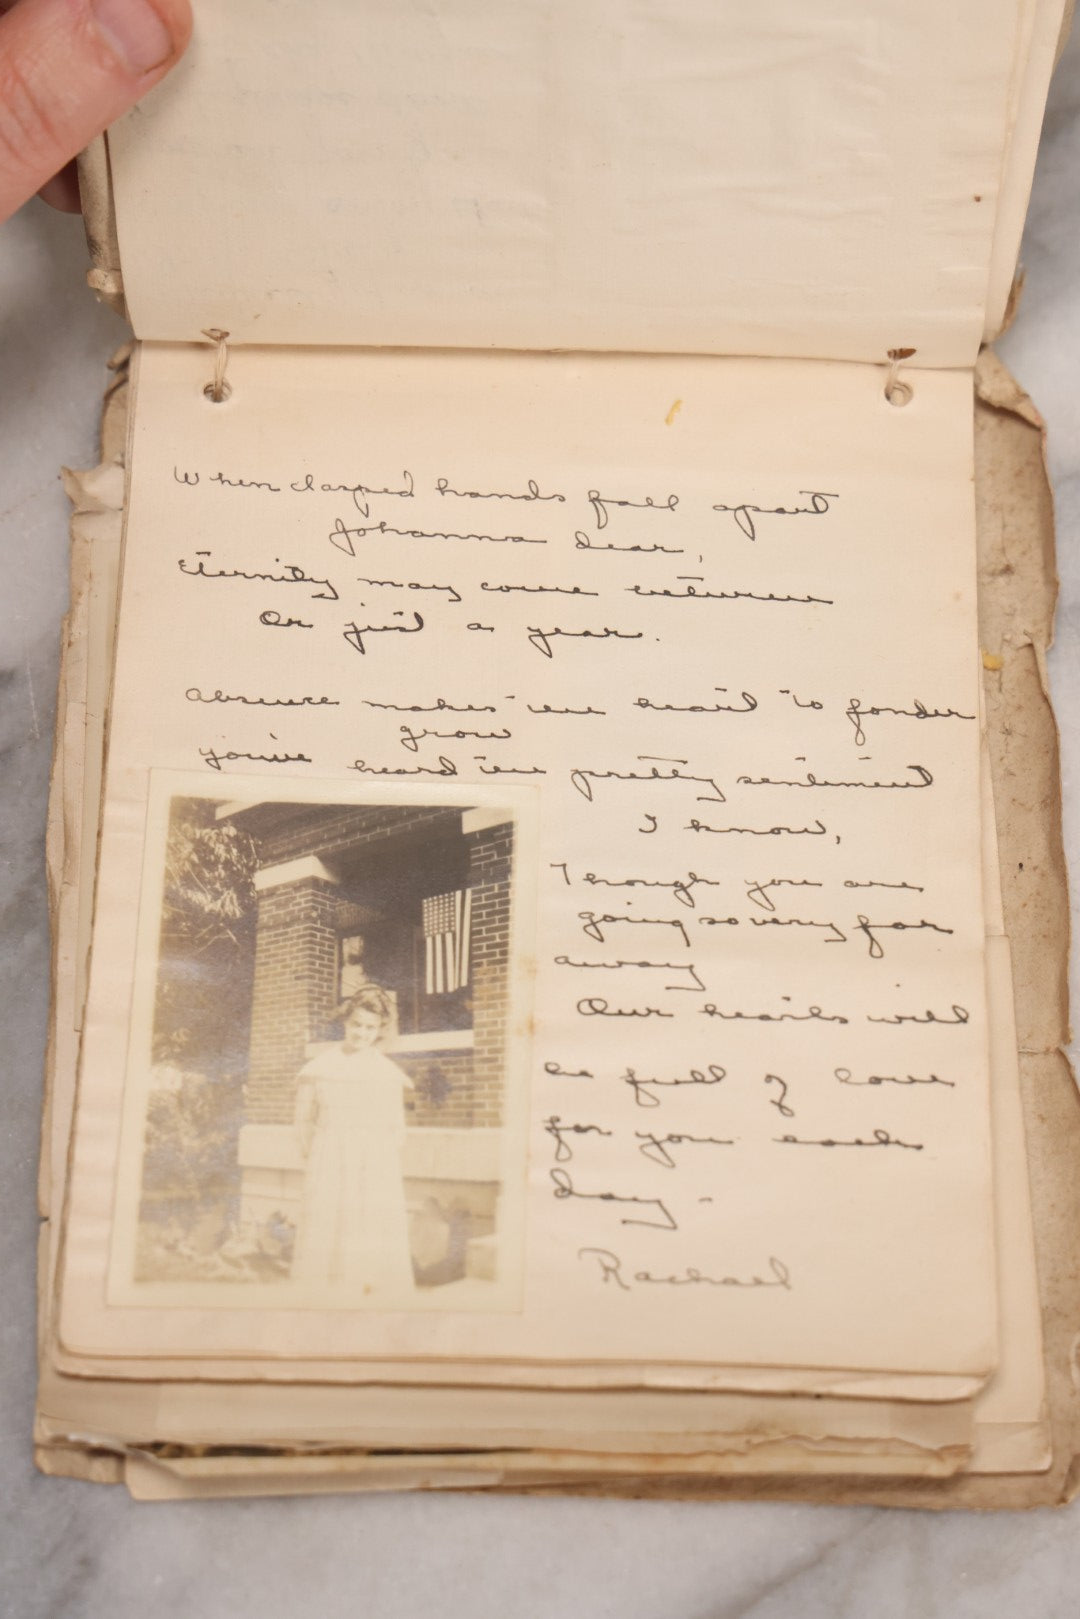 When clasped hands fall apart
Johanna dear,
Eternity may come between
Or just a year.
Absence makes the heart to fonder
grow
you've heard the pretty sentiment
I know,
Though you are
going so very far
away
Our hearts will
be full of love
for you each
day -
Rachael